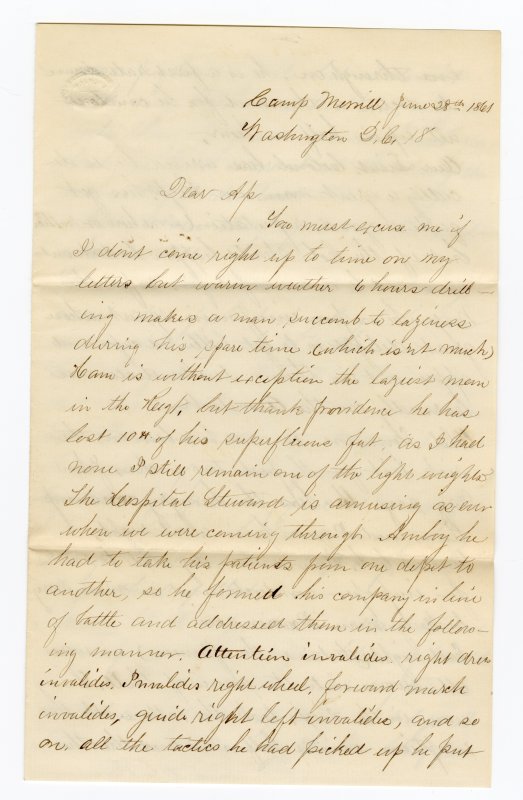 Camp Merrill June 28th 1861
Washington D.C. 18
Dear Ap
You must excuse me if
I dont come right up to time on my
letters but warm weather 6 hours drill-
ing makes a man succomb to laziness
during his spare time (which is'nt much)
Ham is without exception the laziest man
in the Regt. but thank providence he has
lost 10 of his superfluous fat as I had
none I still remain one of the light weights
The Hospital Steward is amusing as ever
when we were coming through Amboy he
had to take his patients from one depot to
another, so he formed his company in line
of battle and addressed them in the follow-
ing manner. Attention invalides. right dress
invalides. Invalides right wheel, forward march
invalides, guide right left invalides, and so
on, all the tactics he had picked up he put